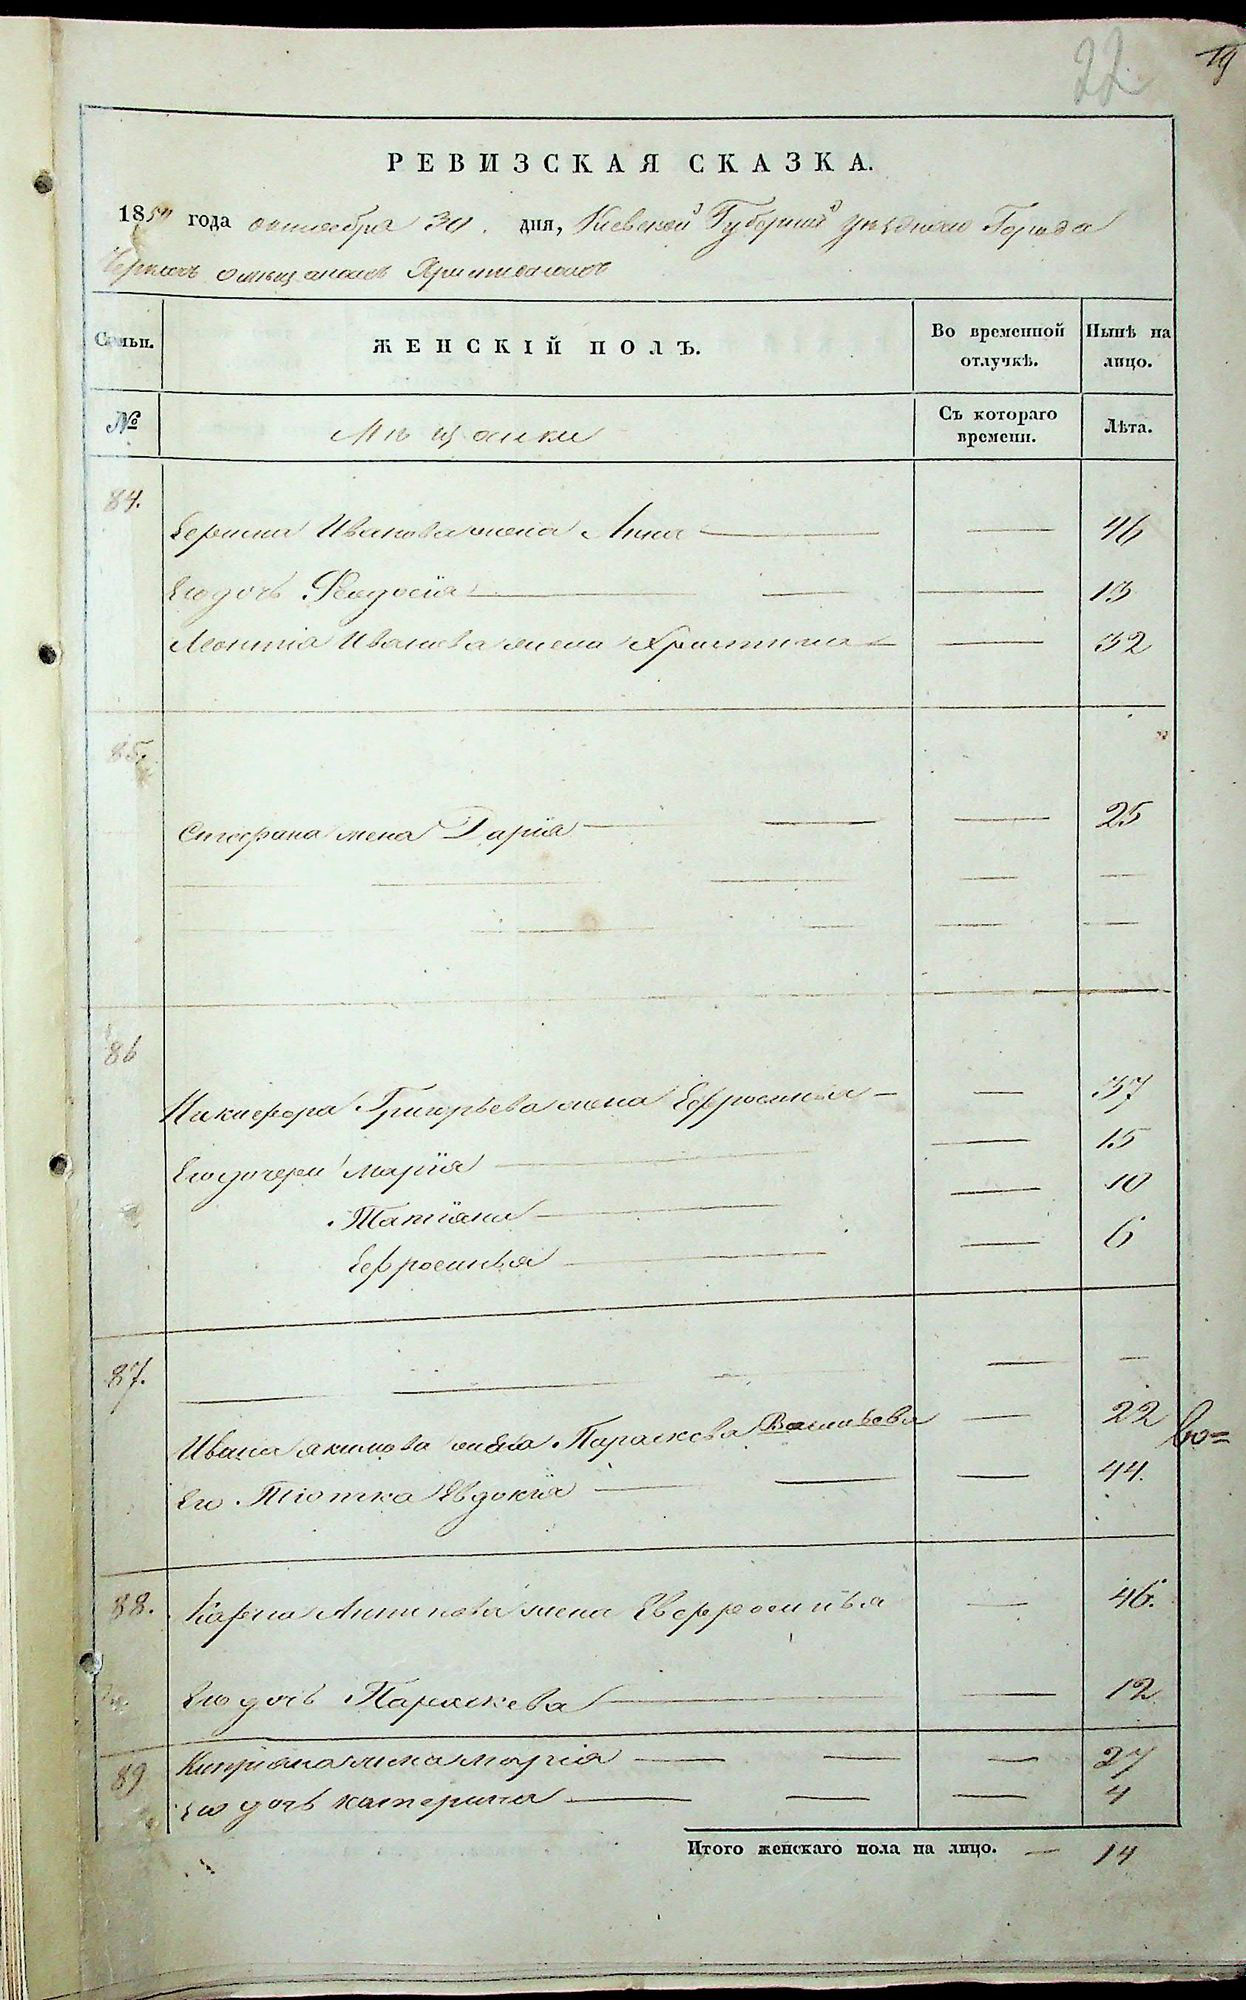 22
19
РЕВИЗСКАЯ СКАЗКА.
1850 года октября 30. дня, Киевской Губернии уѣзднаго Города
Черкасъ о мѣщанахъ Християнахъ
Семьи. ЖЕНСКІЙ ПОЛЪ. Во временной отлучкѣ. Нынѣ на лицо.
№ Мѣщанки Съ котораго времени. Лѣта.
84.
Иванова жена Анна — — 46
Его дочь Феодосія — — — 13
Леонтія Иванова жена Христина — — 32
85.
Стефана жена Дарія — — — 25
— — — — —
— — — — —
86
Никифора Григорьева жена Ефросинья — — 37
Его дочери Марія — — 15
Татіяна — — 10
Ефросинья — — 6
87. — — — — —
Ивана Якимова жена Параскева Васильева — 22
Во=
Его Тіотка Евдокія — — — 44.
88. Карпа Антипова жена Евфросинья — 46.
Его дочь Параскева — — 12
89 Кипріяна жена Марія — — — 27
Его дочь Катерина — — — 4
Итого женскаго пола на лицо. — 14